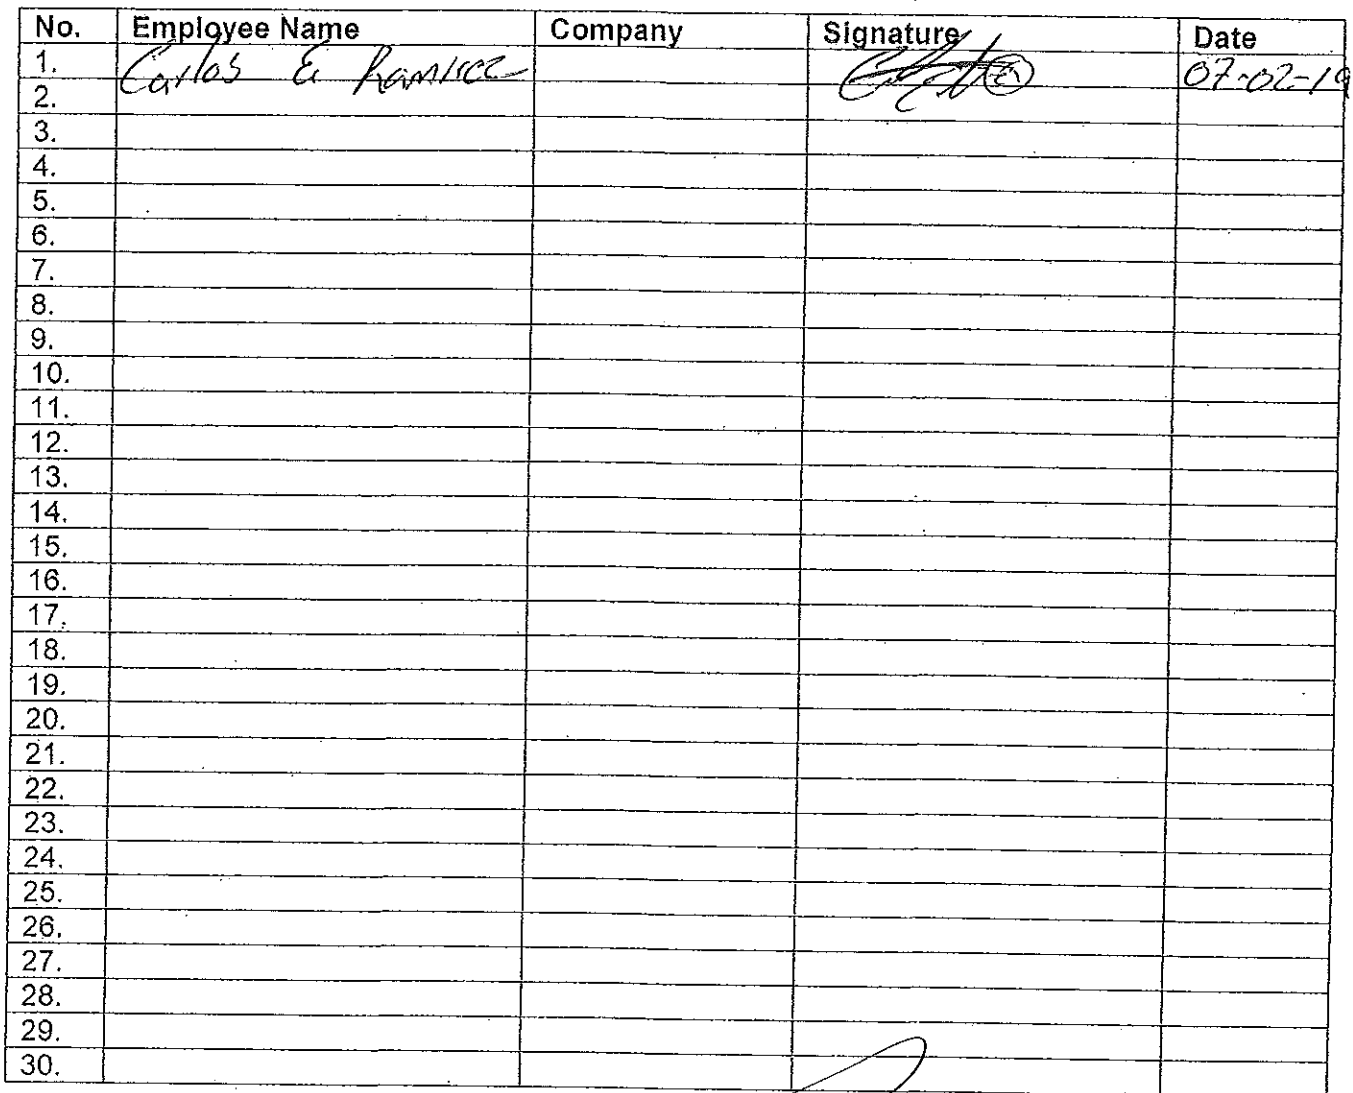 No. Employee Name Company Signature Date
1. Carlos E Ramirez 07-02-19
2.
3.
4.
5.
6.
7.
8.
9.
10.
11.
12.
13.
14.
15.
16.
17.
18.
19.
20.
21.
22.
23.
24.
25.
26.
27.
28.
29.
30.